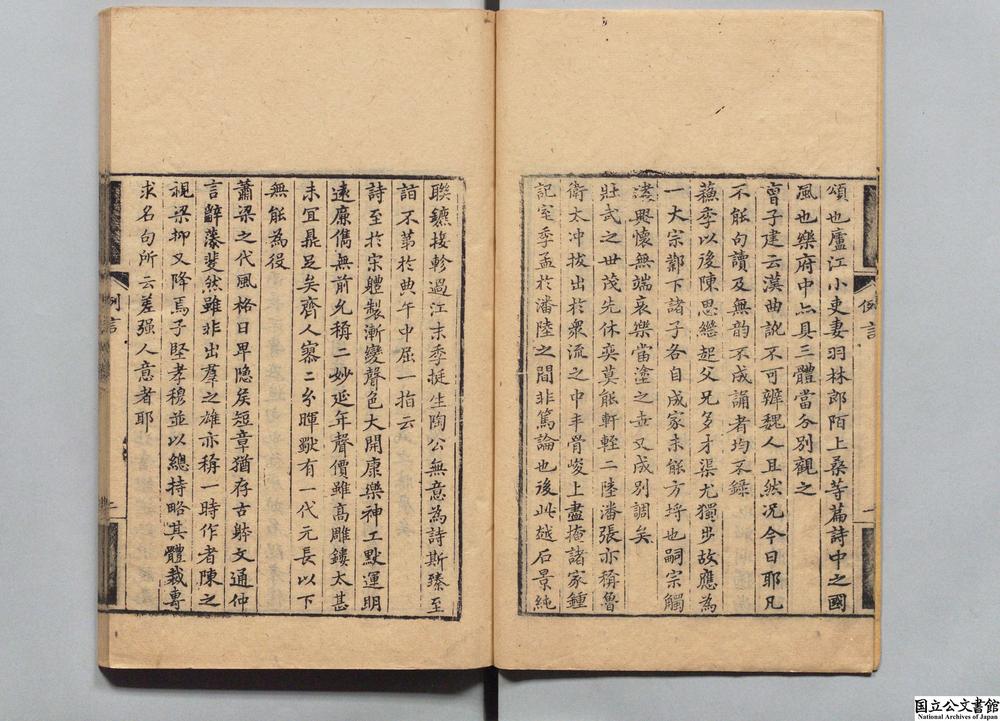 頌也廬江小吏妻羽林郎陌上桑等篇詩中之國
風也樂府中亦具三體當分別觀之
曹子建云漢曲訛不可辨魏人且然况今日耶凡
不能句讀及無韵不成誦者均不録
蘇李以後陳思繼起父兄多才渠尤獨步故應為
一大宗鄴下諸子各自成家未能方埓也嗣宗觸
淒興懷無端哀樂當塗之世又成別調矣
壯武之世茂先休奕莫能軒輊二陸潘張亦稱魯
衛太冲拔出於衆流之中丰骨峻上盡掩諸家鍾
記室季孟於潘陸之間非篤論也後此越石景純
聯鑣接軫過江末季挺生陶公無意為詩斯臻至
詣不第於典午中屈一指云
詩至於宋體製漸變聲色大開康樂神工默運明
遠廉儁無前允稱二妙延年聲價雖高雕鏤太甚
未冝鼎足矣齊人寥二分暉獸有一代元長以下
無能為役
蕭梁之代風格日卑隐矦短章猶存古軆文通仲
言辭藻斐然雖非出羣之雄亦稱一時作者陳之
視梁抑又降焉子堅孝穆並以總持略其體裁專
求名句所云差强人意者耶
例言
一
例言
二
国立公文書館
National Archives of Japan